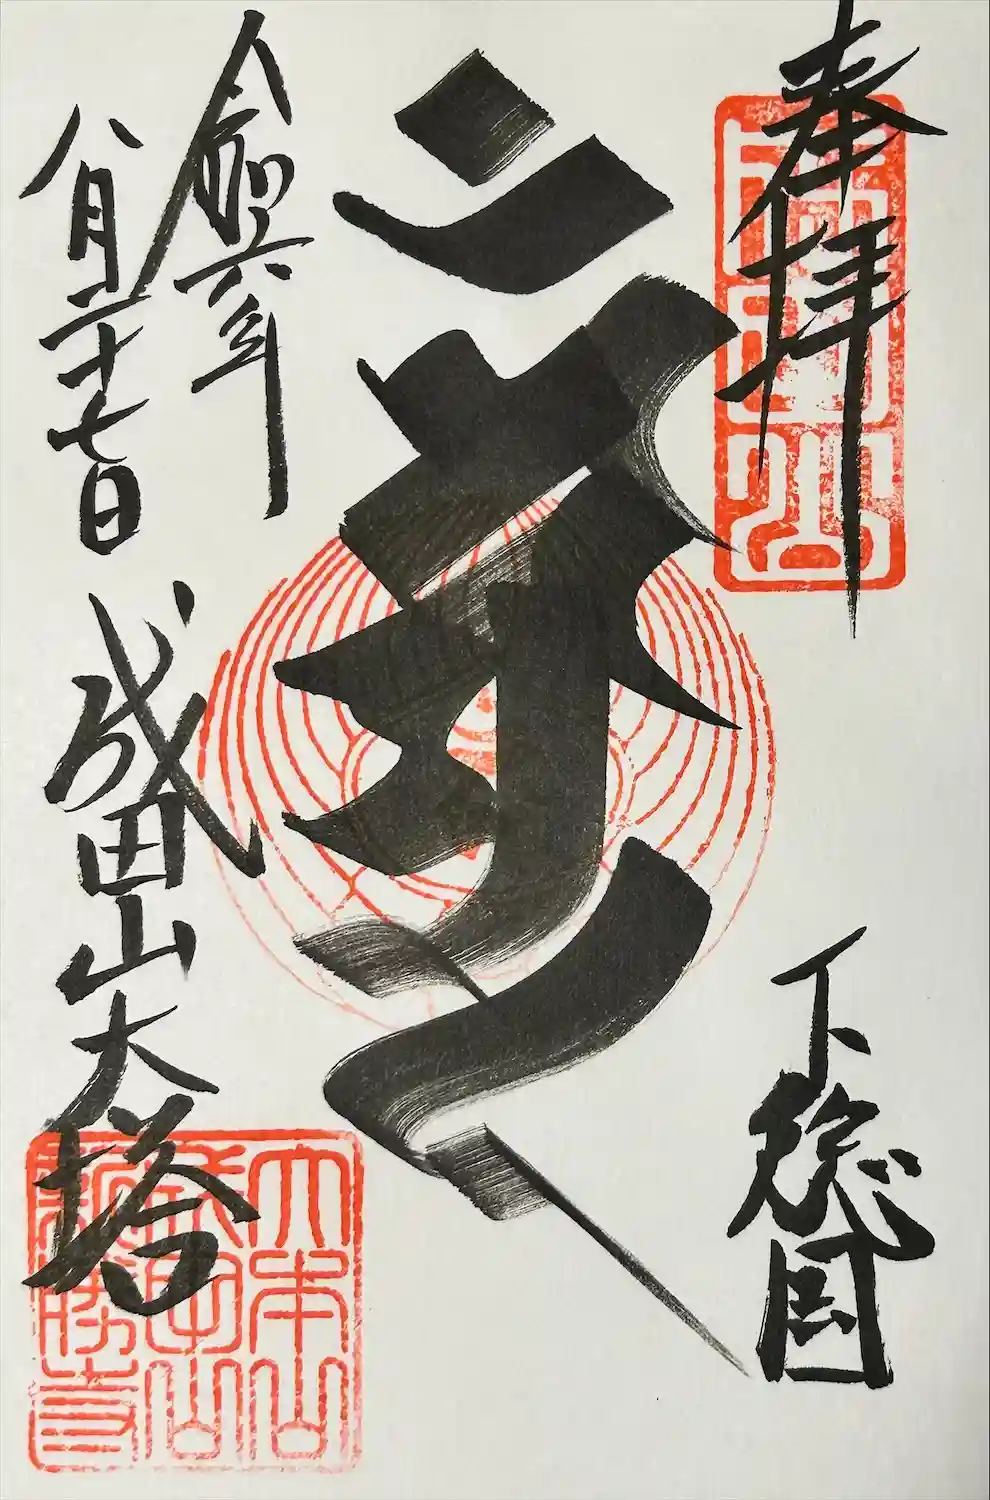 奉拝
下総国
令和六年
八月二十七日
成田山大塔
成田山
大本山
成田山
新勝寺